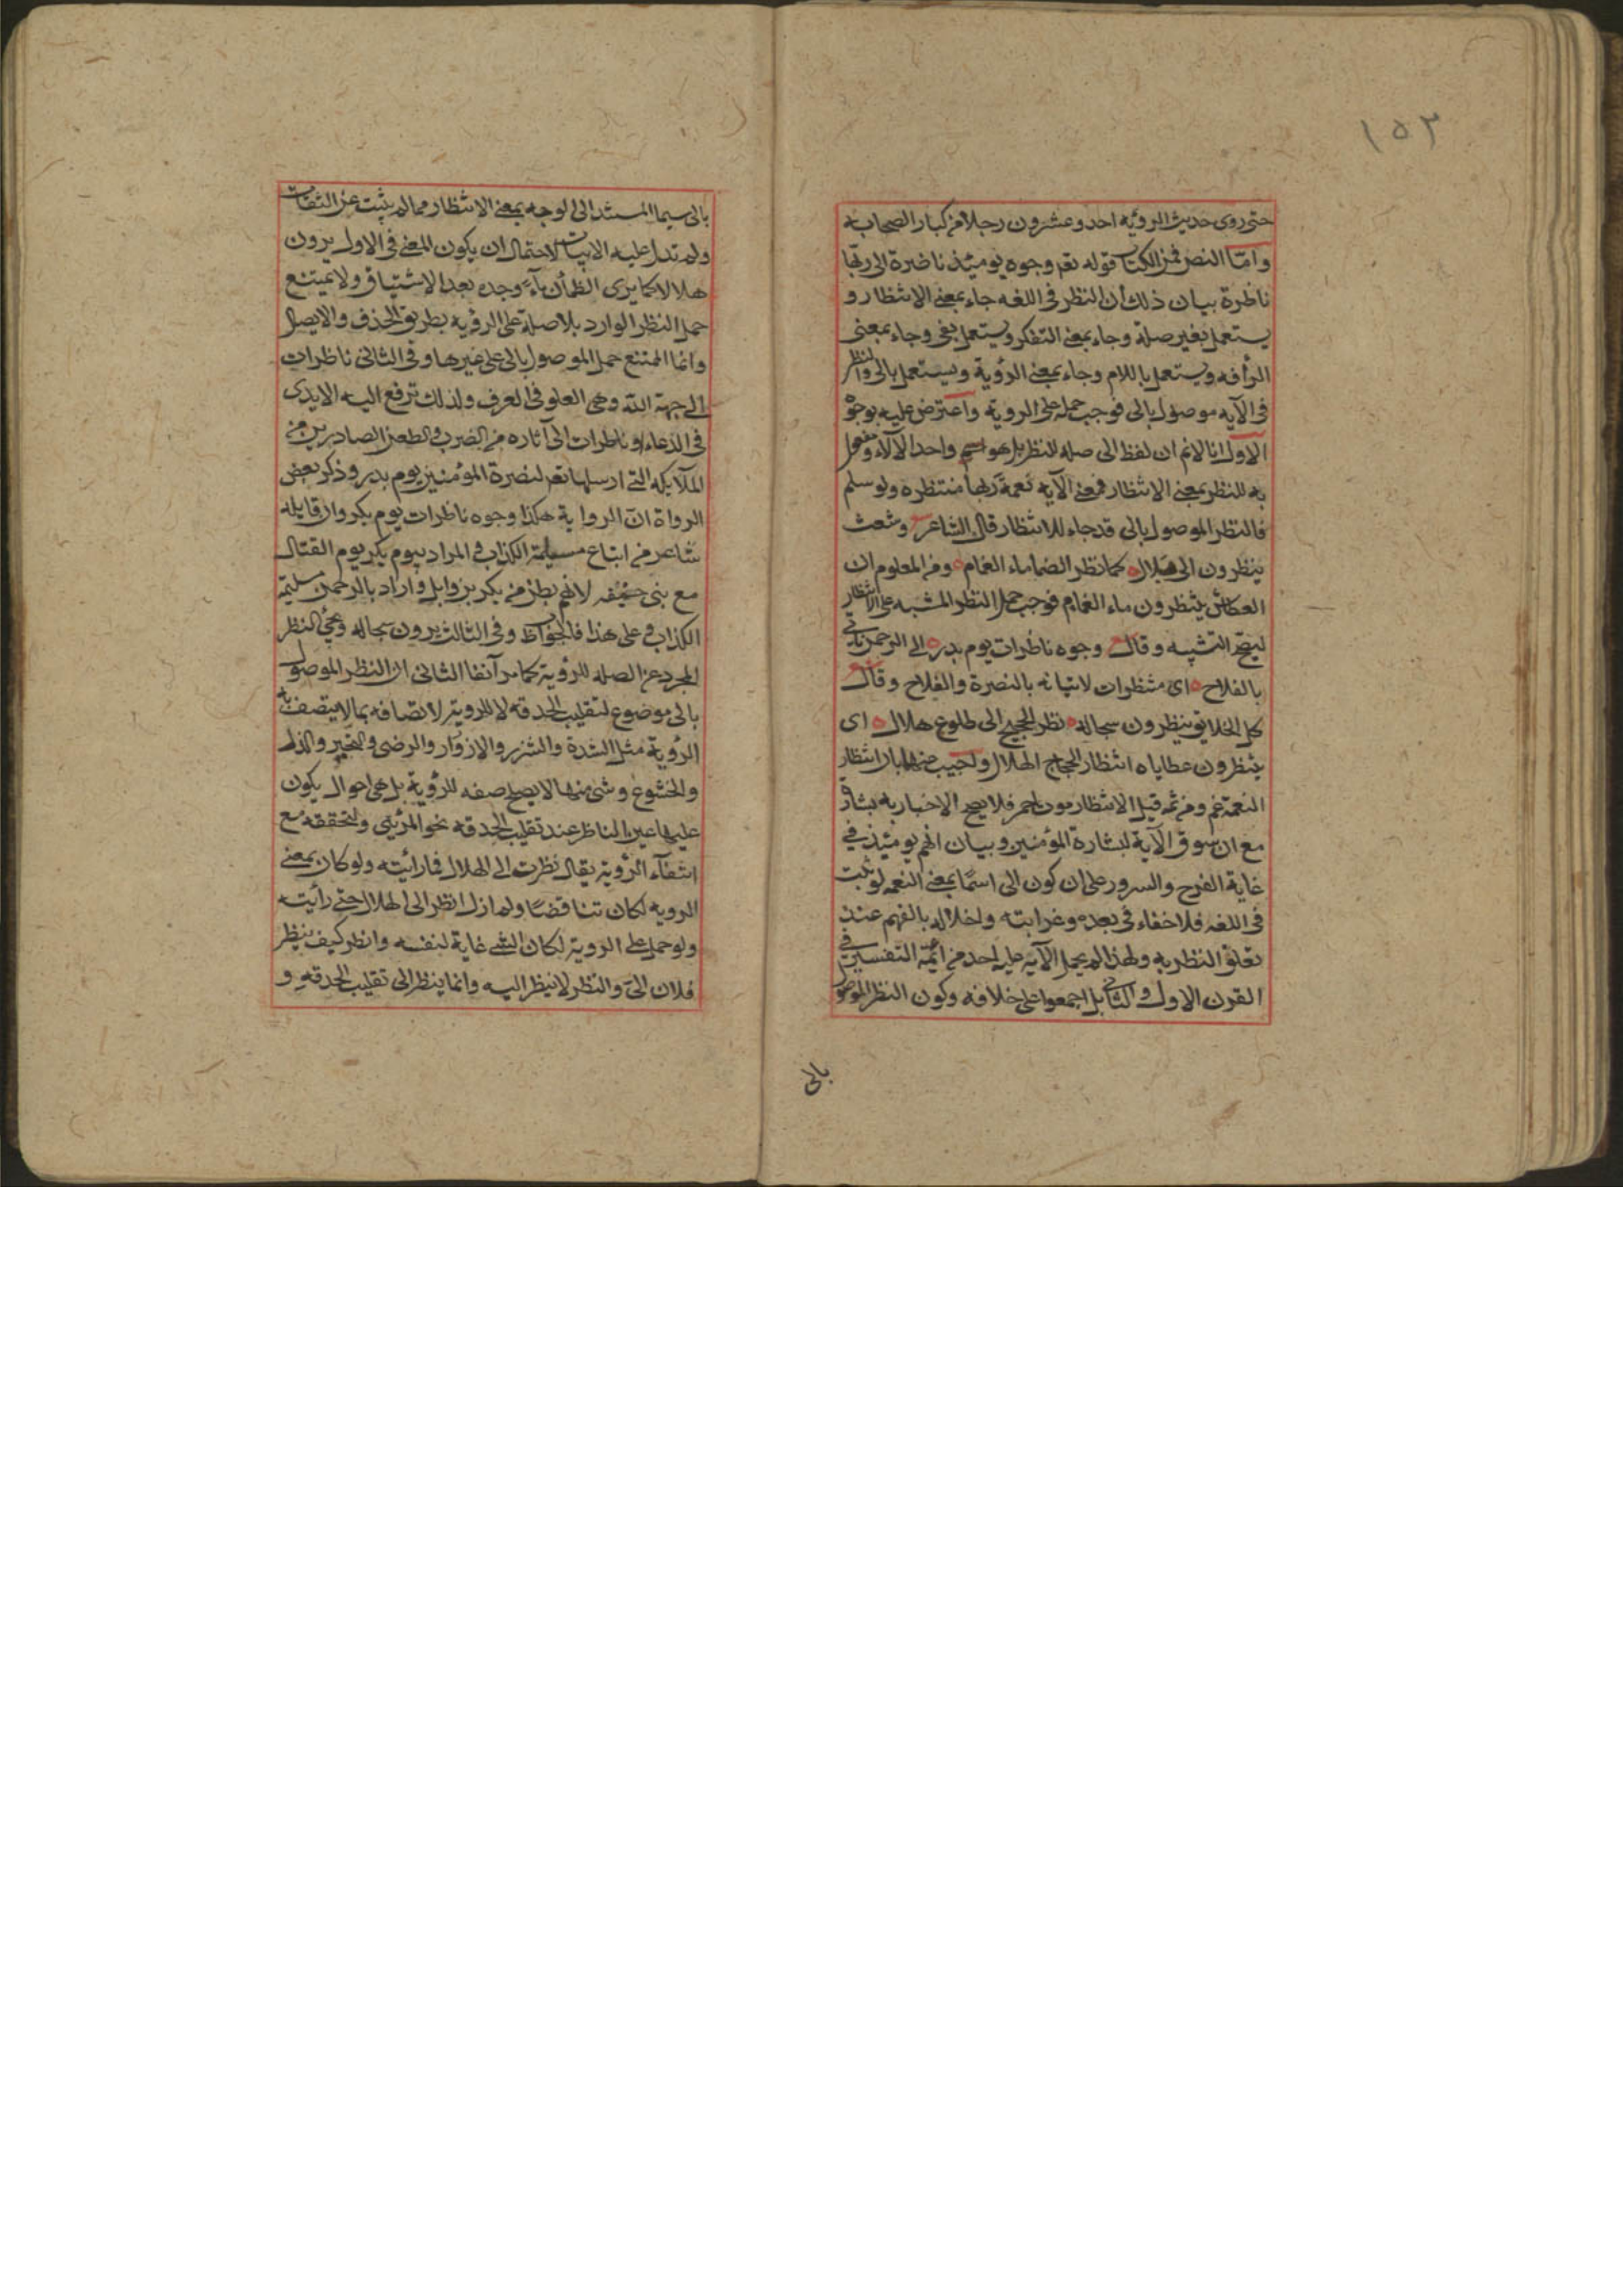 ١٥٣
حتى روى حديث الرؤية احد وعشرون رجلا من كبار الصحابة
وامّا النص فمن الكتاب قوله تعم وجوه يومئذ ناضرة الى ربّها
ناظرة بيان ذلك ان النظر فى اللغه جاء بمعنى الانتظار و
يستعمل بغير صلة وجاء بمعنى التفكر ويستعمل بفى وجاء بمعنى
الرأفه ويستعمل باللام وجاء بمعنى الرؤية ويستعمل بالى والنظر
فى الآيه موصول بالى فوجب حمله على الروية واعترض عليه بوجوه
الاول انا لانم ان لفظ الى صلة للنظر بل هو اسم واحد الآلاء ومفعول
به للنظر بمعنى الانتظار فمعنى الآيه نعمة ربها منتظره ولو سلم
فالنظر الموصول بالى قد جاء للانتظار قال الشاعر وشعث
ينظرون الى هلال كما نظر الظماء ماء الغمام ومن المعلوم ان
العطاش ينتظرون ماء الغمام فوجب حمل النظر المشبه على الانتظار
ليصح التشبيه وقال وجوه ناظرات يوم بدر الى الرحمن تاتى
بالفلاح اى منتظرات لاتيانه بالنصرة والفلاح وقال
كل الخلايق ينظرون سجاله نظر الحجيج الى طلوع هلال اى
ينتظرون عطاياه انتظار الحجاج الهلال واجيب عنها بان انتظار
النعمة غم ومن ثمه قيل الانتظار موت احمر فلا يصح الاخبار به بشارة
مع ان سوق الآية لبشارة المؤمنين وبيان انهم يومئذ فى
غاية الفرح والسرور على ان كون الى اسمًا بمعنى النعمه لو ثبت
فى اللغه فلا خفاء فى بعده وغرابته واخلاله بالفهم عند
تعلق النظر به ولهذا لم يحمل الآيه عليه احد من ائمة التفسير فى
القرن الاول والثانى بل اجمعوا على خلافه وكون النظر الموصول
بالى
بالى سيما المسند الى الوجه بمعنى الانتظار مما لم يثبت عن الثقات
ولم تدل عليه الابيات لاحتمال ان يكون المعنى فى الاول يرون
هلالا كما يرى الظمأن ماءً وجده بعد الاشتياق ولا يمتنع
حمل النظر الوارد بلا صلة على الرؤيه بطريق الحذف والايصال
وانما الممتنع حمل الموصول بالى على غيرها وفى الثانى ناظرات
الى جهة الله وهى العلو فى العرف ولذلك ترفع اليه الايدى
فى الدعاء او ناظرات الى آثاره من الضرب والطعن الصادرين من
الملآيكه التى ارسلها تعم لنصرة المؤمنين يوم بدر وذكر بعض
الرواة ان الرواية هكذا وجوه ناظرات يوم بكر وان قايله
شاعر من اتباع مسيلمة الكذاب والمراد بيوم بكر يوم القتال
مع بنى حنيفه لانهم بطن من بكر بن وايل واراد بالرحمن مسيلمة
الكذاب وعلى هذا فالجواب وفى الثالث يرون سجاله ومجئ النظر
المجرد عن الصله للرؤية كما مر آنفا الثانى ان النظر الموصول
بالى موضوع لتقليب الحدقه لا للروية لاتصافه بما لا يتصف به
الرؤية مثل الشدة والشزر والازوِرار والرضى والتجبر والذل
والخشوع وشئ منها لا يصلح صفه للرؤية بل هى احوال يكون
عليها عين الناظر عند تقليب الحدقه نحو المرئى ولتحققه مع
انتفآء الرؤية يقال نظرت الى الهلال فما رائيته ولو كان بمعنى
الرويه لكان تناقضًا ولم ازل انظر الى الهلال حتى رأيته
ولو حمل على الروية لكان الشئ غاية لنفسه وانظر كيف ينظر
فلان الىّ والنظر لا ينظر اليه وانما ينظر الى تقليب الحدقه و